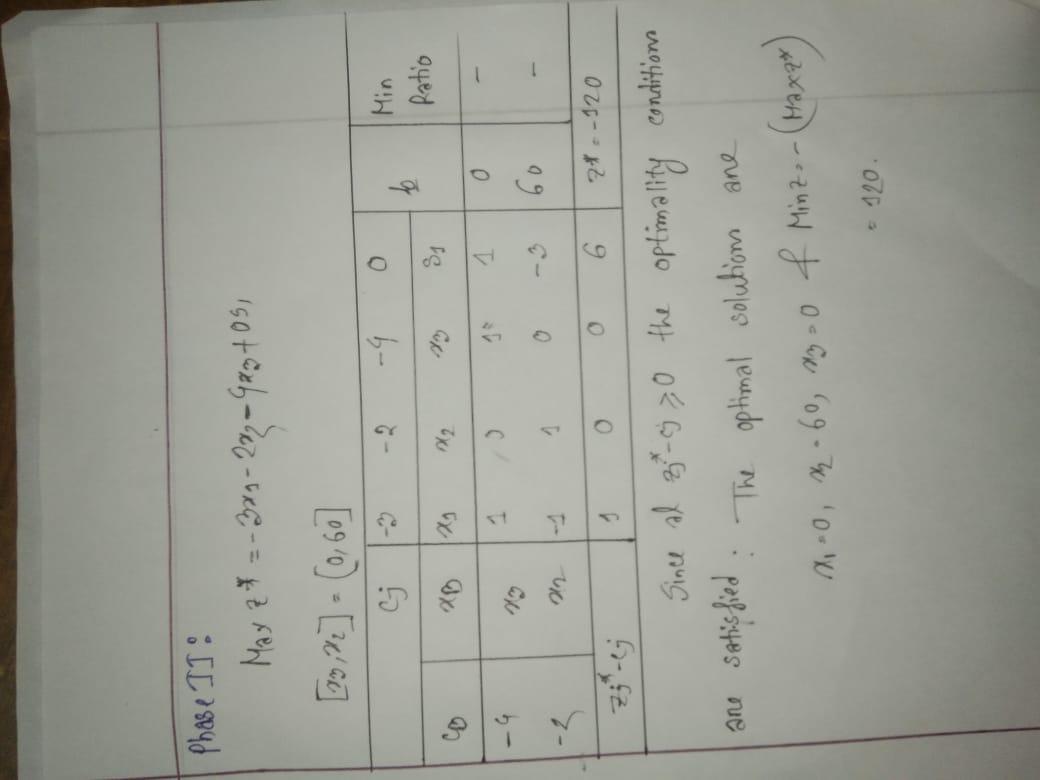 Phase II:
Max z* = -3x1 - 2x2 - 4x3 + 0s1
[x3, x2] = (0, 60]
Cj -3 -2 -4 0 b Min Ratio
CB xB x1 x2 x3 s1
-4 x3 1 0 1 1 0 -
-2 x2 -1 1 0 -3 60 -
zj*-cj 1 0 0 6 z* = -120
Since al zj*-cj ≥ 0 the optimality conditions
are satisfied : The optimal solutions are
x1 = 0, x2 = 60, x3 = 0 & Min z = -(Max z*)
= 120.